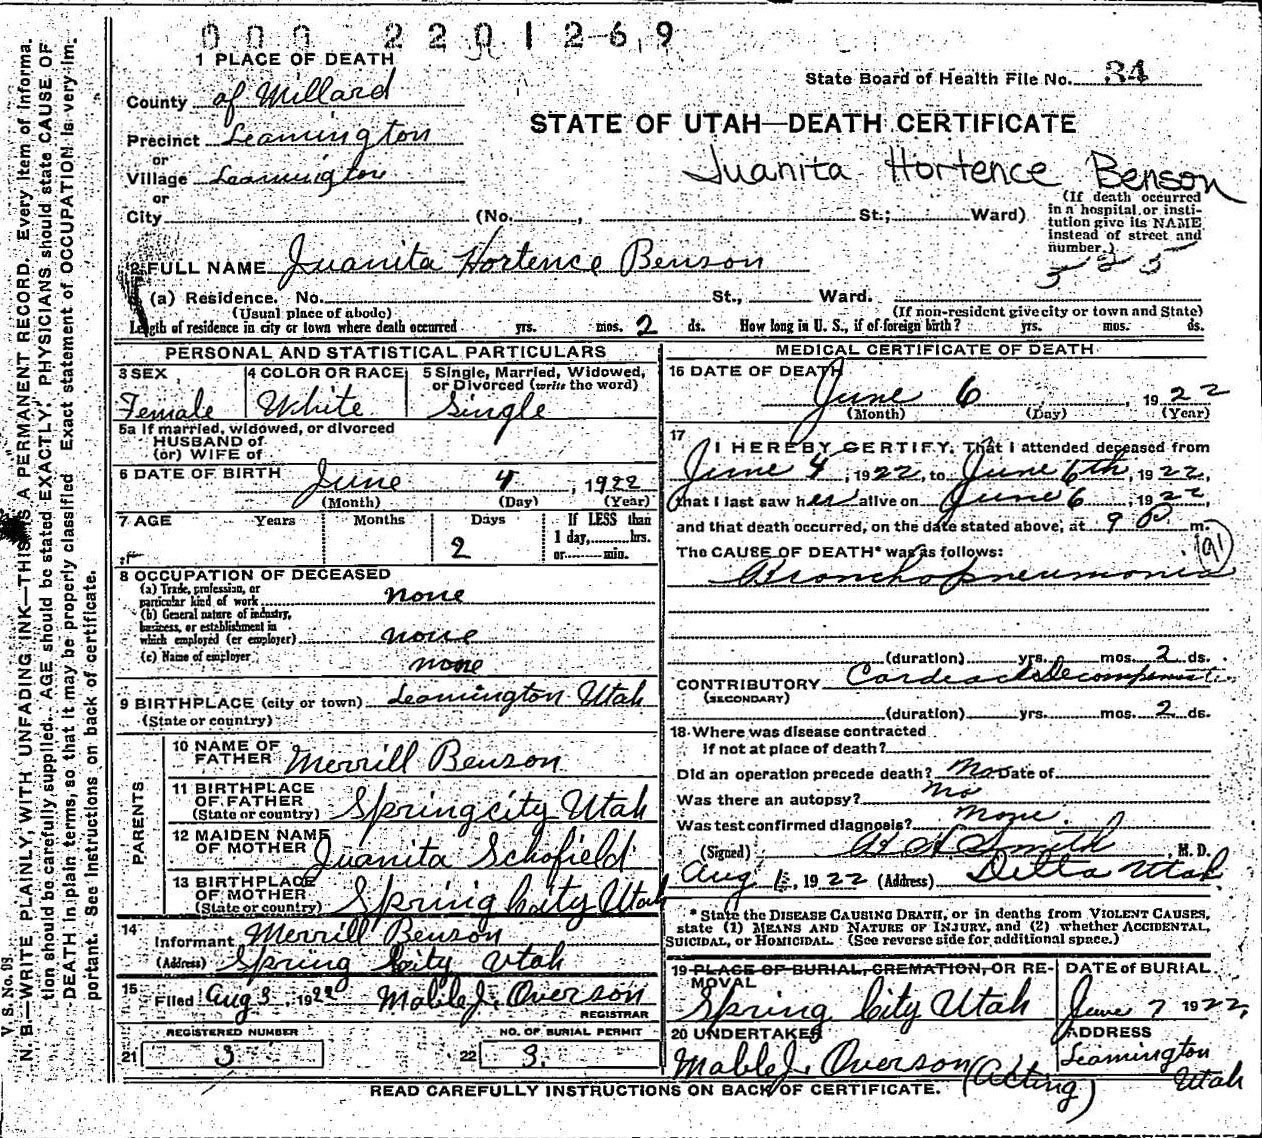 000 2201269
1 PLACE OF DEATH
State Board of Health File No. 34
County of Millard
STATE OF UTAH—DEATH CERTIFICATE
Precinct Leamington
or
Juanita Hortence Benson
Village Leamington
or
City (No. , St.; Ward)
(If death occurred
in a hospital or insti-
tution give its NAME
instead of street and
number.)
2 FULL NAME Juanita Hortence Benson
(a) Residence. No. St., Ward.
(Usual place of abode) (If non-resident give city or town and State)
Length of residence in city or town where death occurred yrs. mos. 2 ds. How long in U. S., if of foreign birth? yrs. mos. ds.
PERSONAL AND STATISTICAL PARTICULARS
3 SEX 4 COLOR OR RACE 5 Single, Married, Widowed,
or Divorced (write the word)
Female White Single
5a If married, widowed, or divorced
HUSBAND of
(or) WIFE of
6 DATE OF BIRTH June 4, 1922
(Month) (Day) (Year)
7 AGE Years Months Days If LESS than
1 day, hrs.
2 or min.
8 OCCUPATION OF DECEASED
(a) Trade, profession, or
particular kind of work none
(b) General nature of industry,
business, or establishment in
which employed (or employer) none
(c) Name of employer none
9 BIRTHPLACE (city or town) Leamington Utah
(State or country)
PARENTS
10 NAME OF
FATHER Merrill Benson
11 BIRTHPLACE
OF FATHER
(State or country) Spring city Utah
12 MAIDEN NAME
OF MOTHER Juanita Schofield
13 BIRTHPLACE
OF MOTHER
(State or country) Spring City Utah
14
Informant Merrill Benson
(Address) Spring City Utah
15 Filed Aug 3, 1922 Mable J. Overson
REGISTRAR
REGISTERED NUMBER NO. OF BURIAL PERMIT
21 3 22 3.
MEDICAL CERTIFICATE OF DEATH
16 DATE OF DEATH
June 6, 1922
(Month) (Day) (Year)
17
I HEREBY CERTIFY, That I attended deceased from
June 4, 1922, to June 6th, 1922,
that I last saw her alive on June 6, 1922,
and that death occurred, on the date stated above, at 9 P. m.
The CAUSE OF DEATH* was as follows: 91
Bronchopneumonia
(duration) yrs. mos. 2 ds.
CONTRIBUTORY Cardeac Decompensation
(SECONDARY)
(duration) yrs. mos. 2 ds.
18 Where was disease contracted
if not at place of death?
Did an operation precede death? No Date of
Was there an autopsy? No
Was test confirmed diagnosis? None.
(Signed) Smith M. D.
Aug 1, 1922 (Address) Delta Utah
* State the DISEASE CAUSING DEATH, or in deaths from VIOLENT CAUSES,
state (1) MEANS AND NATURE OF INJURY, and (2) whether ACCIDENTAL,
SUICIDAL, or HOMICIDAL. (See reverse side for additional space.)
19 PLACE OF BURIAL, CREMATION, OR RE-
MOVAL
DATE of BURIAL
Spring City Utah June 7 1922,
20 UNDERTAKER ADDRESS
Mable J. Overson (Acting) Leamington
Utah
READ CAREFULLY INSTRUCTIONS ON BACK OF CERTIFICATE.
V. S. No.
N. B.—WRITE PLAINLY, WITH UNFADING INK—THIS IS A PERMANENT RECORD. Every item of informa-
tion should be carefully supplied. AGE should be stated EXACTLY. PHYSICIANS should state CAUSE OF
DEATH in plain terms, so that it may be properly classified. Exact statement of OCCUPATION is very im-
portant. See instructions on back of certificate.